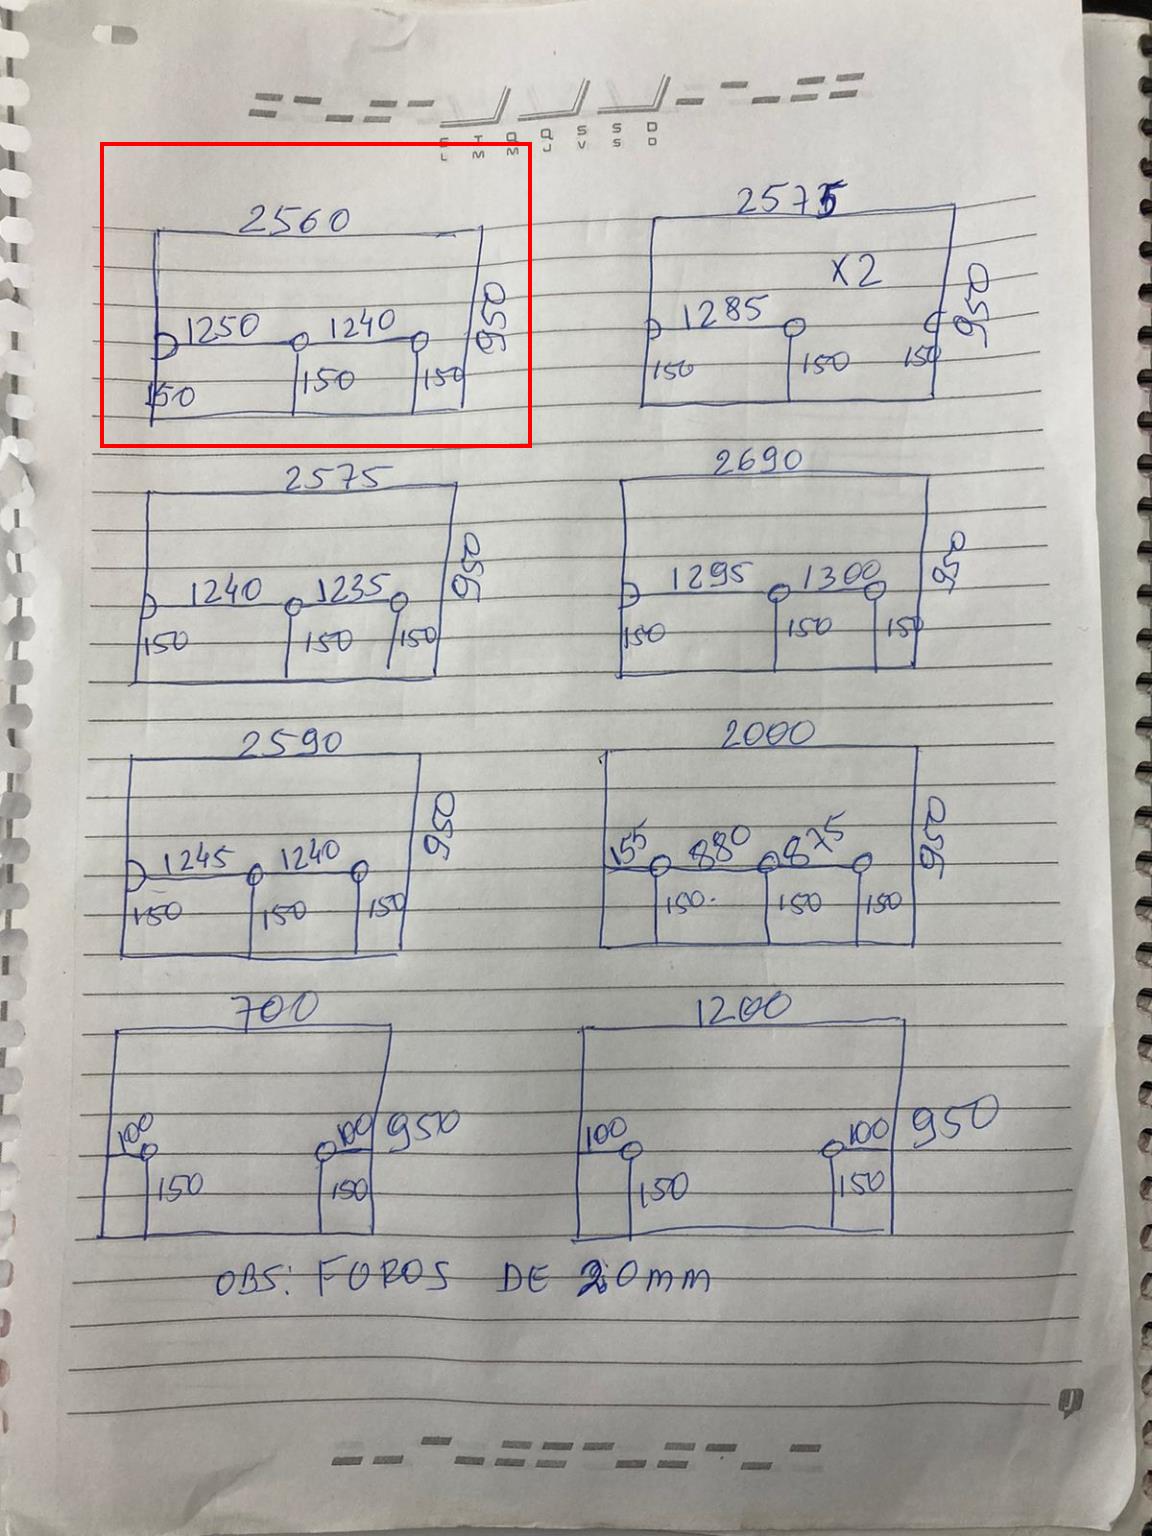 S T Q Q S S D
L M M J V S D
2560
1250 1240 950
150 150 150
2575
X2
1285 950
150 150 150
2575
1240 1235 950
150 150 150
2690
1295 1300 950
150 150 150
2590
1245 1240 950
150 150 150
2000
155 880 875 950
150 150 150
700
100 100 950
150 150
1200
100 100 950
150 150
OBS: FUROS DE 20mm